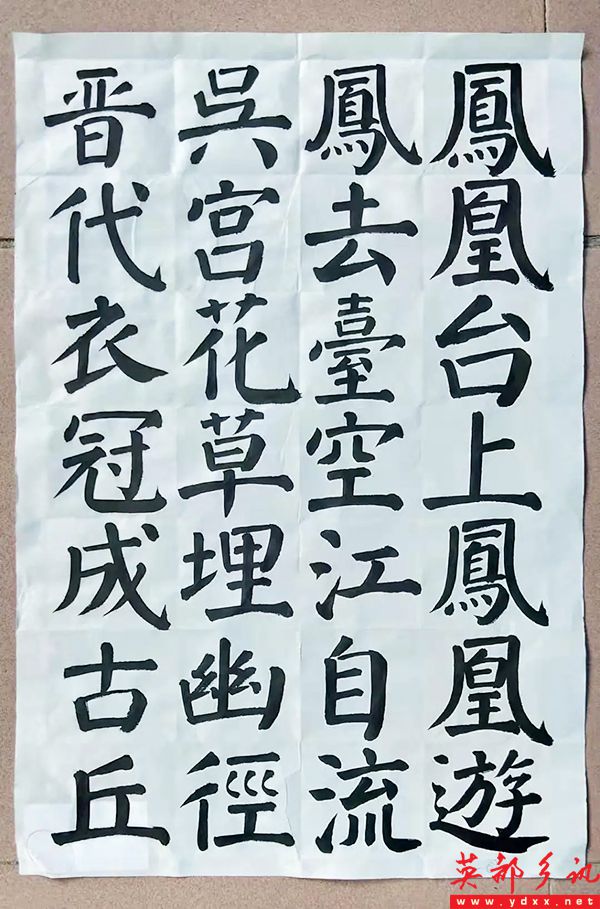 鳳凰台上鳳凰遊
鳳去臺空江自流
吳宮花草埋幽徑
晋代衣冠成古丘
英都乡讯
www.ydxx.net